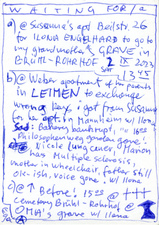 WAITING FOR/a
a) @ SUSANNA's apt Beilstr 26
for ILONA ENGELHARDT to go to
my grandmother's GRAVE in
BRÜHL-ROHRHOF 2 IX 2023
13 45
b) @ Weber apartment of the parents
in LEIMEN to exchange
wrong Key i got from SUSANNE
for he apt in Mannheim w/ ILONA
Sad: Bahama bankrupt,
Philosophenweg gone!
@ Nicole Lung cancer, Manon
has Multiple Sclerosis,
mother in wheelchair, father still
ok-ish, voice gone
c) @ ↑ Before! 15 20 @ †††
Cemetery Brühl-Rohrhof @
OMA's grave w/ Ilona